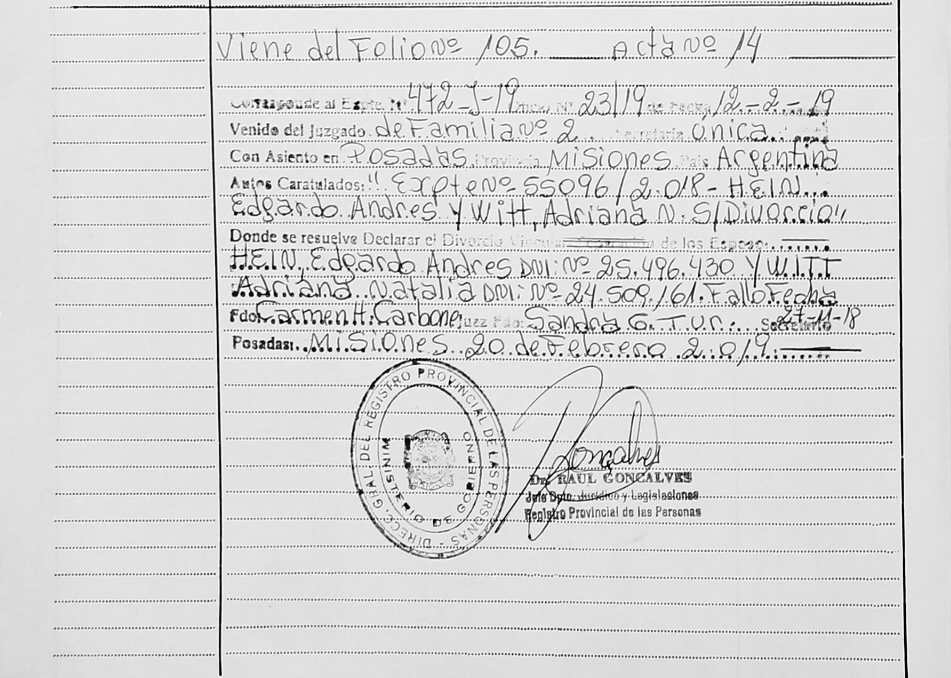 Viene del Folio Nº 105. Acta Nº 14
Corresponde al Expte. Nº 472-J-19 Oficio Nº 23/19 de Fecha 12-2-19
Venido del Juzgado de Familia Nº 2 Secretaria única
Con Asiento en Posadas Provincia Misiones País Argentina
Autos Caratulados: "Expte Nº 55096/2.018- HEIN
Edgardo Andres Y Witt, Adriana N. S/Divorcio"
Donde se resuelve Declarar el Divorcio de los Esposos:
HEIN, Edgardo Andres DNI: Nº 25.496.430 Y WITT
Adriana Natalia DNI: Nº 24.509.161. Fallo Fecha
27-11-18
Fdo. Carmen H. Carbone Juez Fdo: Sandra G. Tur. Secretario
Posadas: Misiones 20 de Febrero 2.019
DIRECC. GRAL. DEL REGISTRO PROVINCIAL DE LAS PERSONAS -
MINISTERIO DE GOBIERNO
Goncalves
Dr. RAUL GONCALVES
Jefe Dpto. Jurídico y Legislaciones
Registro Provincial de las Personas